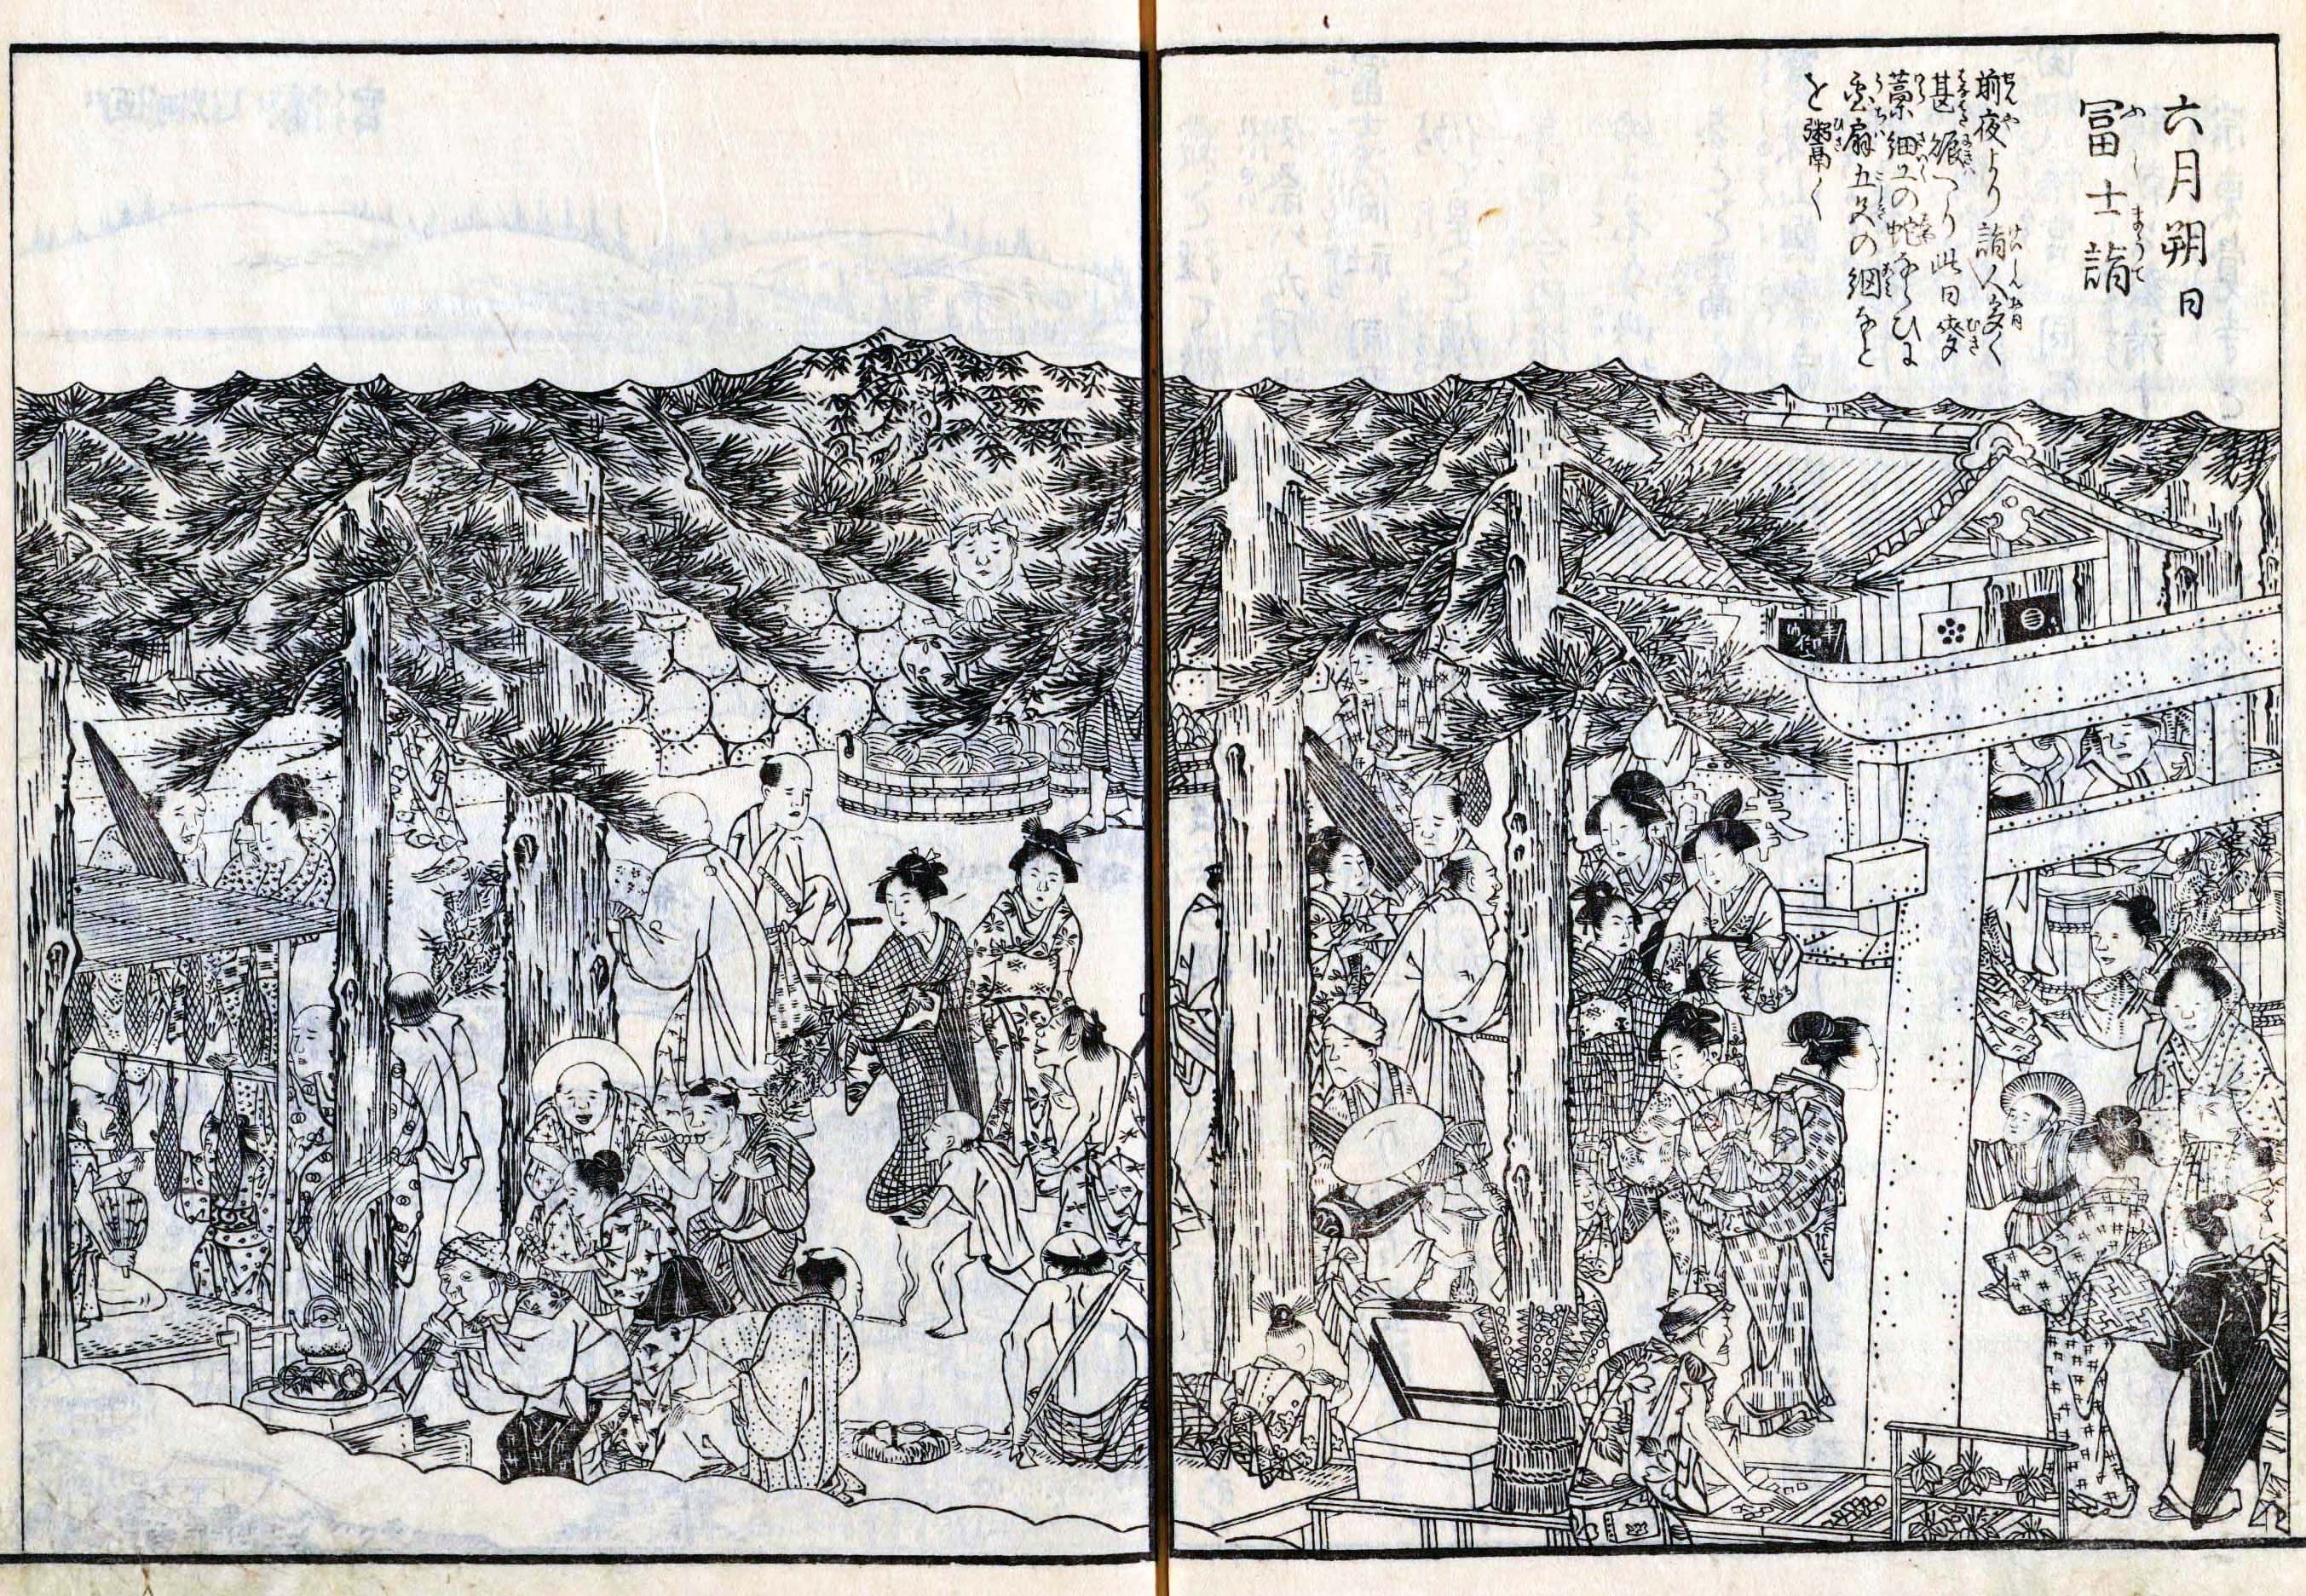 六月朔日
冨士詣
前夜より詣人多く
甚賑へり此日麥
藁細工の蛇ならひに
団扇五色の網なと
を鬻く